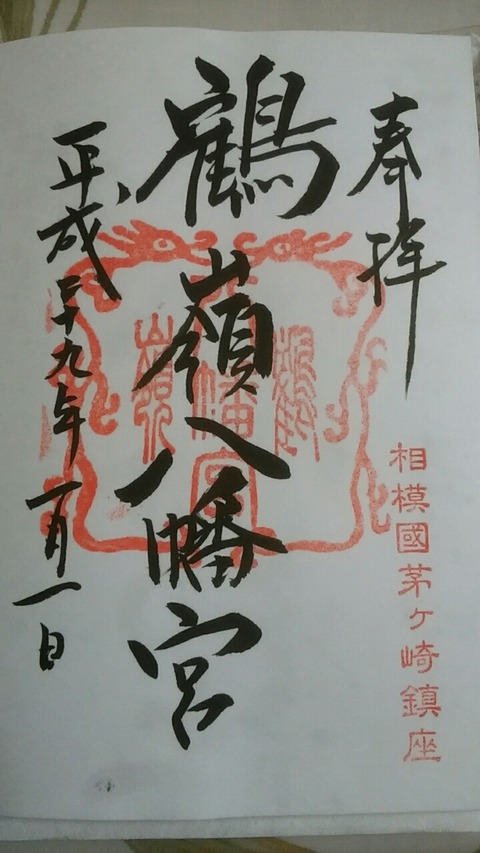 奉拝
相模國茅ヶ崎鎮座
鶴嶺八幡宮
平成二十九年一月一日
鶴
八幡宮
嶺